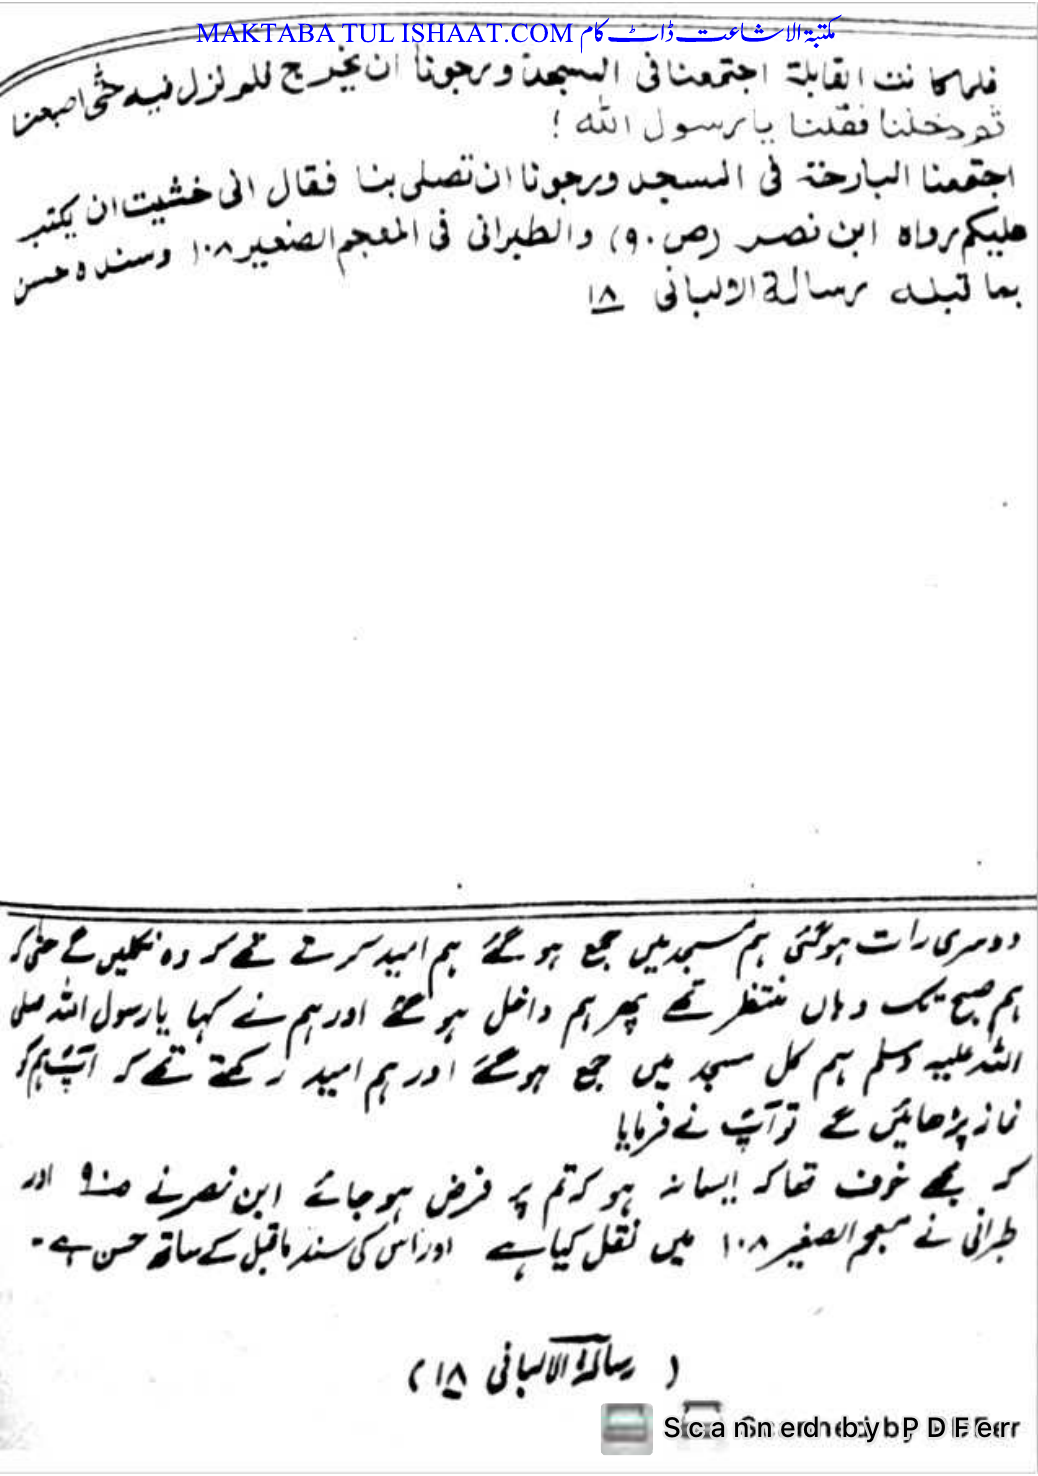 MAKTABA TUL ISHAAT.COM مکتبۃ الاشاعت ڈاٹ کام
فلما كانت القابلة اجتمعنا فى المسجد ورجونا ان يخرج فلم نزل فيه حتى اصبعنا
ثم دخلنا فقلنا يا رسول الله !
اجتمعنا البارحة فى المسجد ورجونا ان تصلى بنا فقال انى خشيت ان يكتب
عليكم رواه ابن نصر (ص ٩٠) والطبرانى فى المعجم الصغير ١٠٨ وسنده حسن
بما قبله رسالة الالبانى ١٨
دوسری رات ہوگئی ہم مسجد میں جمع ہو گئے ہم امید کرتے تھے کہ وہ نکلیں گے حتی کہ
ہم صبح تک وہاں منتظر تھے پھر ہم داخل ہو گئے اور ہم نے کہا یا رسول اللہ صلی
اللہ علیہ وسلم ہم کل مسجد میں جمع ہوگئے اور ہم امید رکھتے تھے کہ آپؐ ہم کو
نماز پڑھائیں گے تو آپؐ نے فرمایا
کہ مجھے خوف تھا کہ ایسا نہ ہو کہ تم پر فرض ہو جائے ابن نصر نے صـ۹۰ اور
طبرانی نے معجم الصغیر ۱۰۸ میں نقل کیا ہے اور اس کی سند ماقبل کے ساتھ حسن ہے۔
( رسالة الالبانی ۱۸ )
Scanned by PDFer